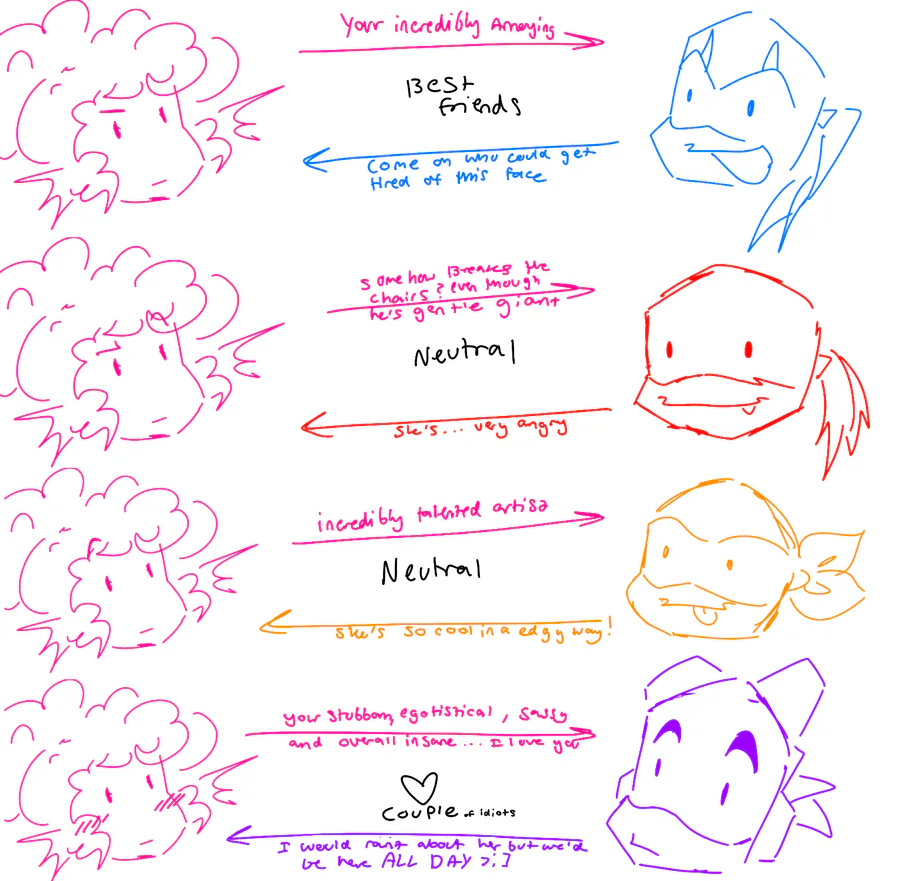 Your incredibly Annoying
Best
friends
Come on who could get
tired of this face
Somehow Breaks the
chairs? even though
he's gentle giant
Neutral
She's... very angry
incredibly talented artist
Neutral
She's so cool in a edgy way!
your stubborn, egotistical, sassy
and overall insane... I love you
Couple of idiots
I would rant about her but we'd
be here ALL DAY >:]